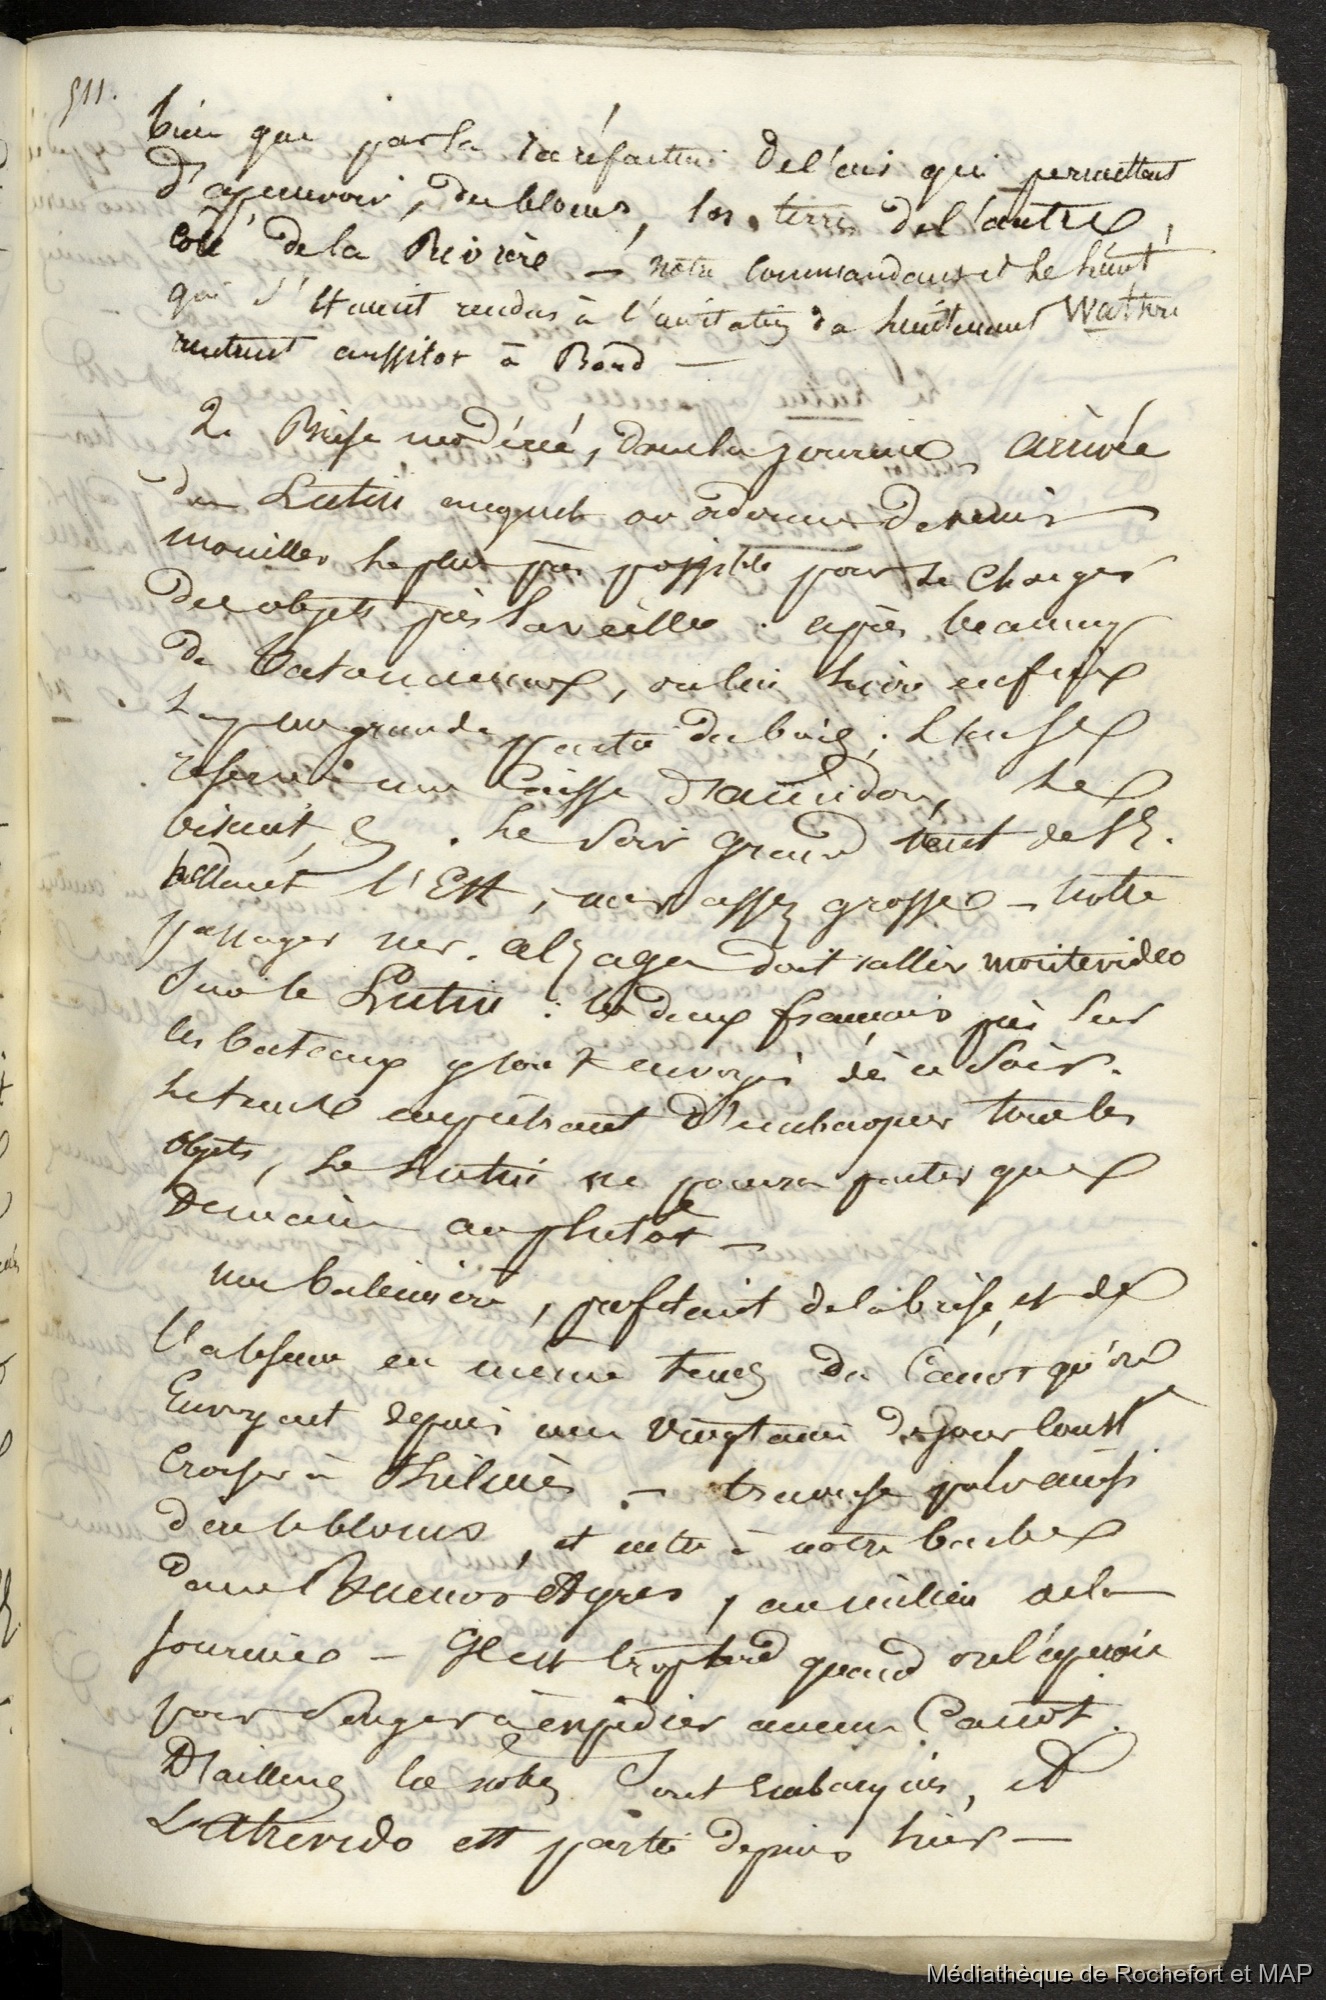 511.
bien que par la raréfaction de l'air qui permettent
d'apercevoir, du blocus, les terres de l'autre
coté de la Rivière — notre commandant et le lieut
qui s'etaient rendus à l'invitation du lieutenant
rentrent aussitot à Bord —
2. Brise modérée, dans la journée, arrivée
du Lutin auquel on ordonne de venir
mouiller le plus près possible pour le charger
des objets pris la veille. après beaucoup
de
une grande partie du bois;
reserve une Caisse d'amidon, le
biscuit, &. Le soir grand vent de SE.
l'Est, mer assez grosse — notre
passager mr. alzaga doit aller montevideo
sur le Lutin : les deux français pris sur
les bateaux y sont envoyés dès ce soir.
empêchant d'embarquer tous les
objets, le Lutin ne pourra partir que
Demain au plutôt —
une baleinière, profitant de la brise, et de
l'absence en même tems du Canot qu'on
Envoyait depuis une vingtaine de jours
Croiser à — traverse
dere le blocus, et entre à notre barbe
dans Buenos Ayres, au milieu de la
journée — Il est trop tard quand on l'aperçoit
pour songer à expédier aucun Canot.
D'ailleurs les notres sont embarqués, et
L'Atrevido est parti depuis hier —
Médiathèque de Rochefort et MAP